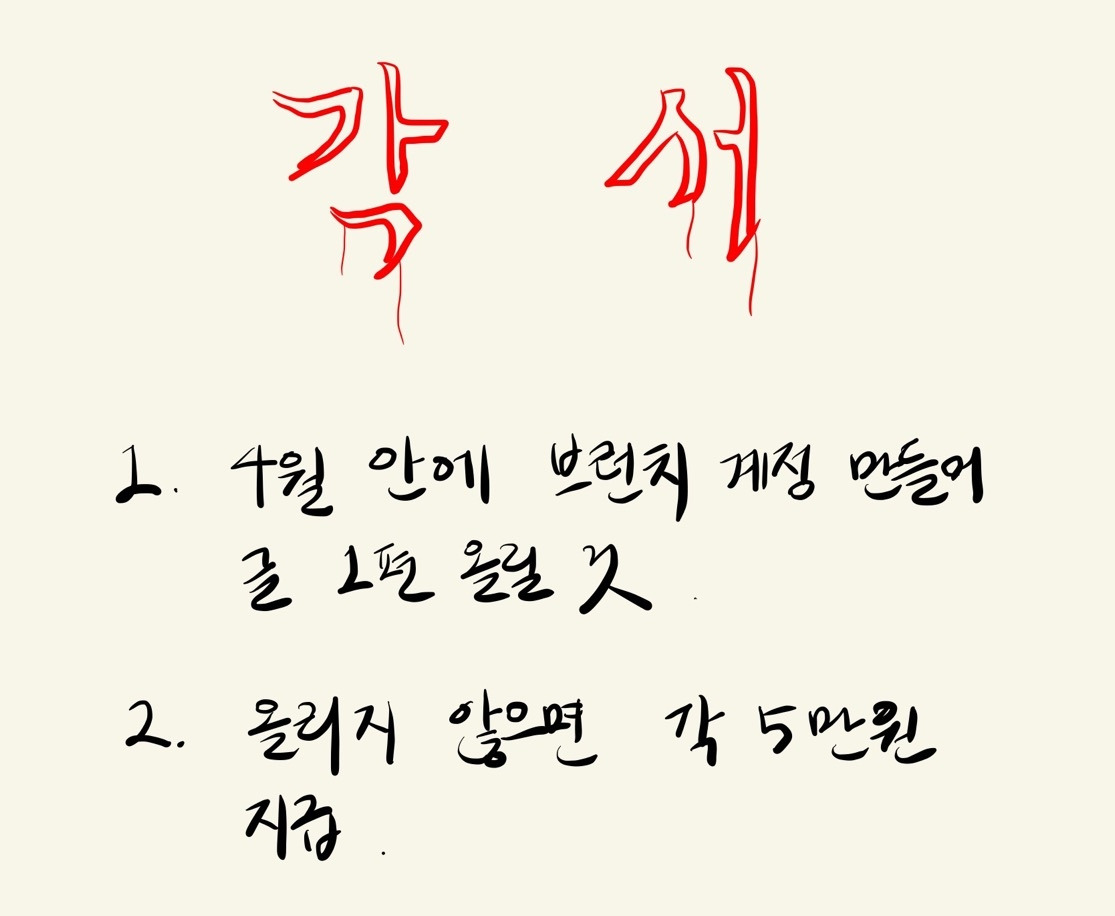 각 서
1. 4월 안에 브런치 계정 만들어
글 1편 올릴 것.
2. 올리지 않으면 각 5만원
지급.